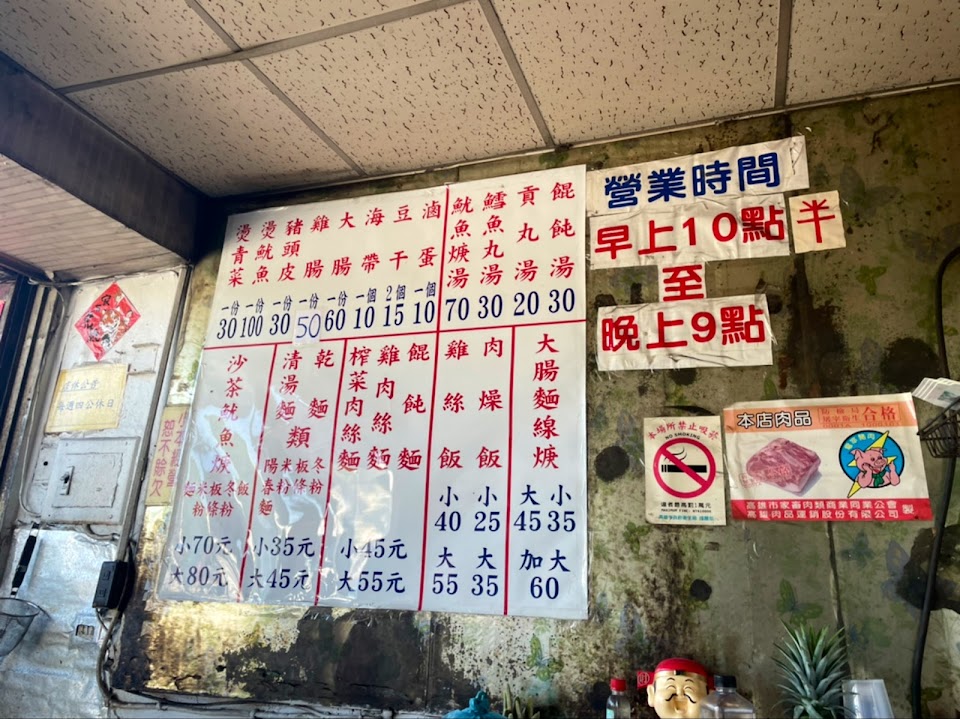 餛飩湯 30
貢丸湯 20
鱈魚丸湯 30
魷魚焿湯 70
滷蛋 一個 10
豆干 2個 15
海帶 一個 10
大腸 一份 60
雞腸 一份 50
豬頭皮 一份 30
燙魷魚 一份 100
燙青菜 一份 30
大腸麵線焿
小 35
大 45
加大 60
肉燥飯
小 25
大 35
雞絲飯
小 40
大 55
餛飩麵
雞肉絲麵
榨菜肉絲麵
小45元
大55元
乾麵
清湯麵類
冬粉
板條
米粉
陽春麵
小35元
大45元
沙茶魷魚焿
飯
冬粉
板條
米粉
麵
小70元
大80元
營業時間
早上10點半
至
晚上9點
本場所禁止吸菸
NO SMOKING
本店肉品
合格
高雄市家畜肉類商業同業公會
高雄肉品運銷股份有限公司 製
每週四公休日
恕不賒欠